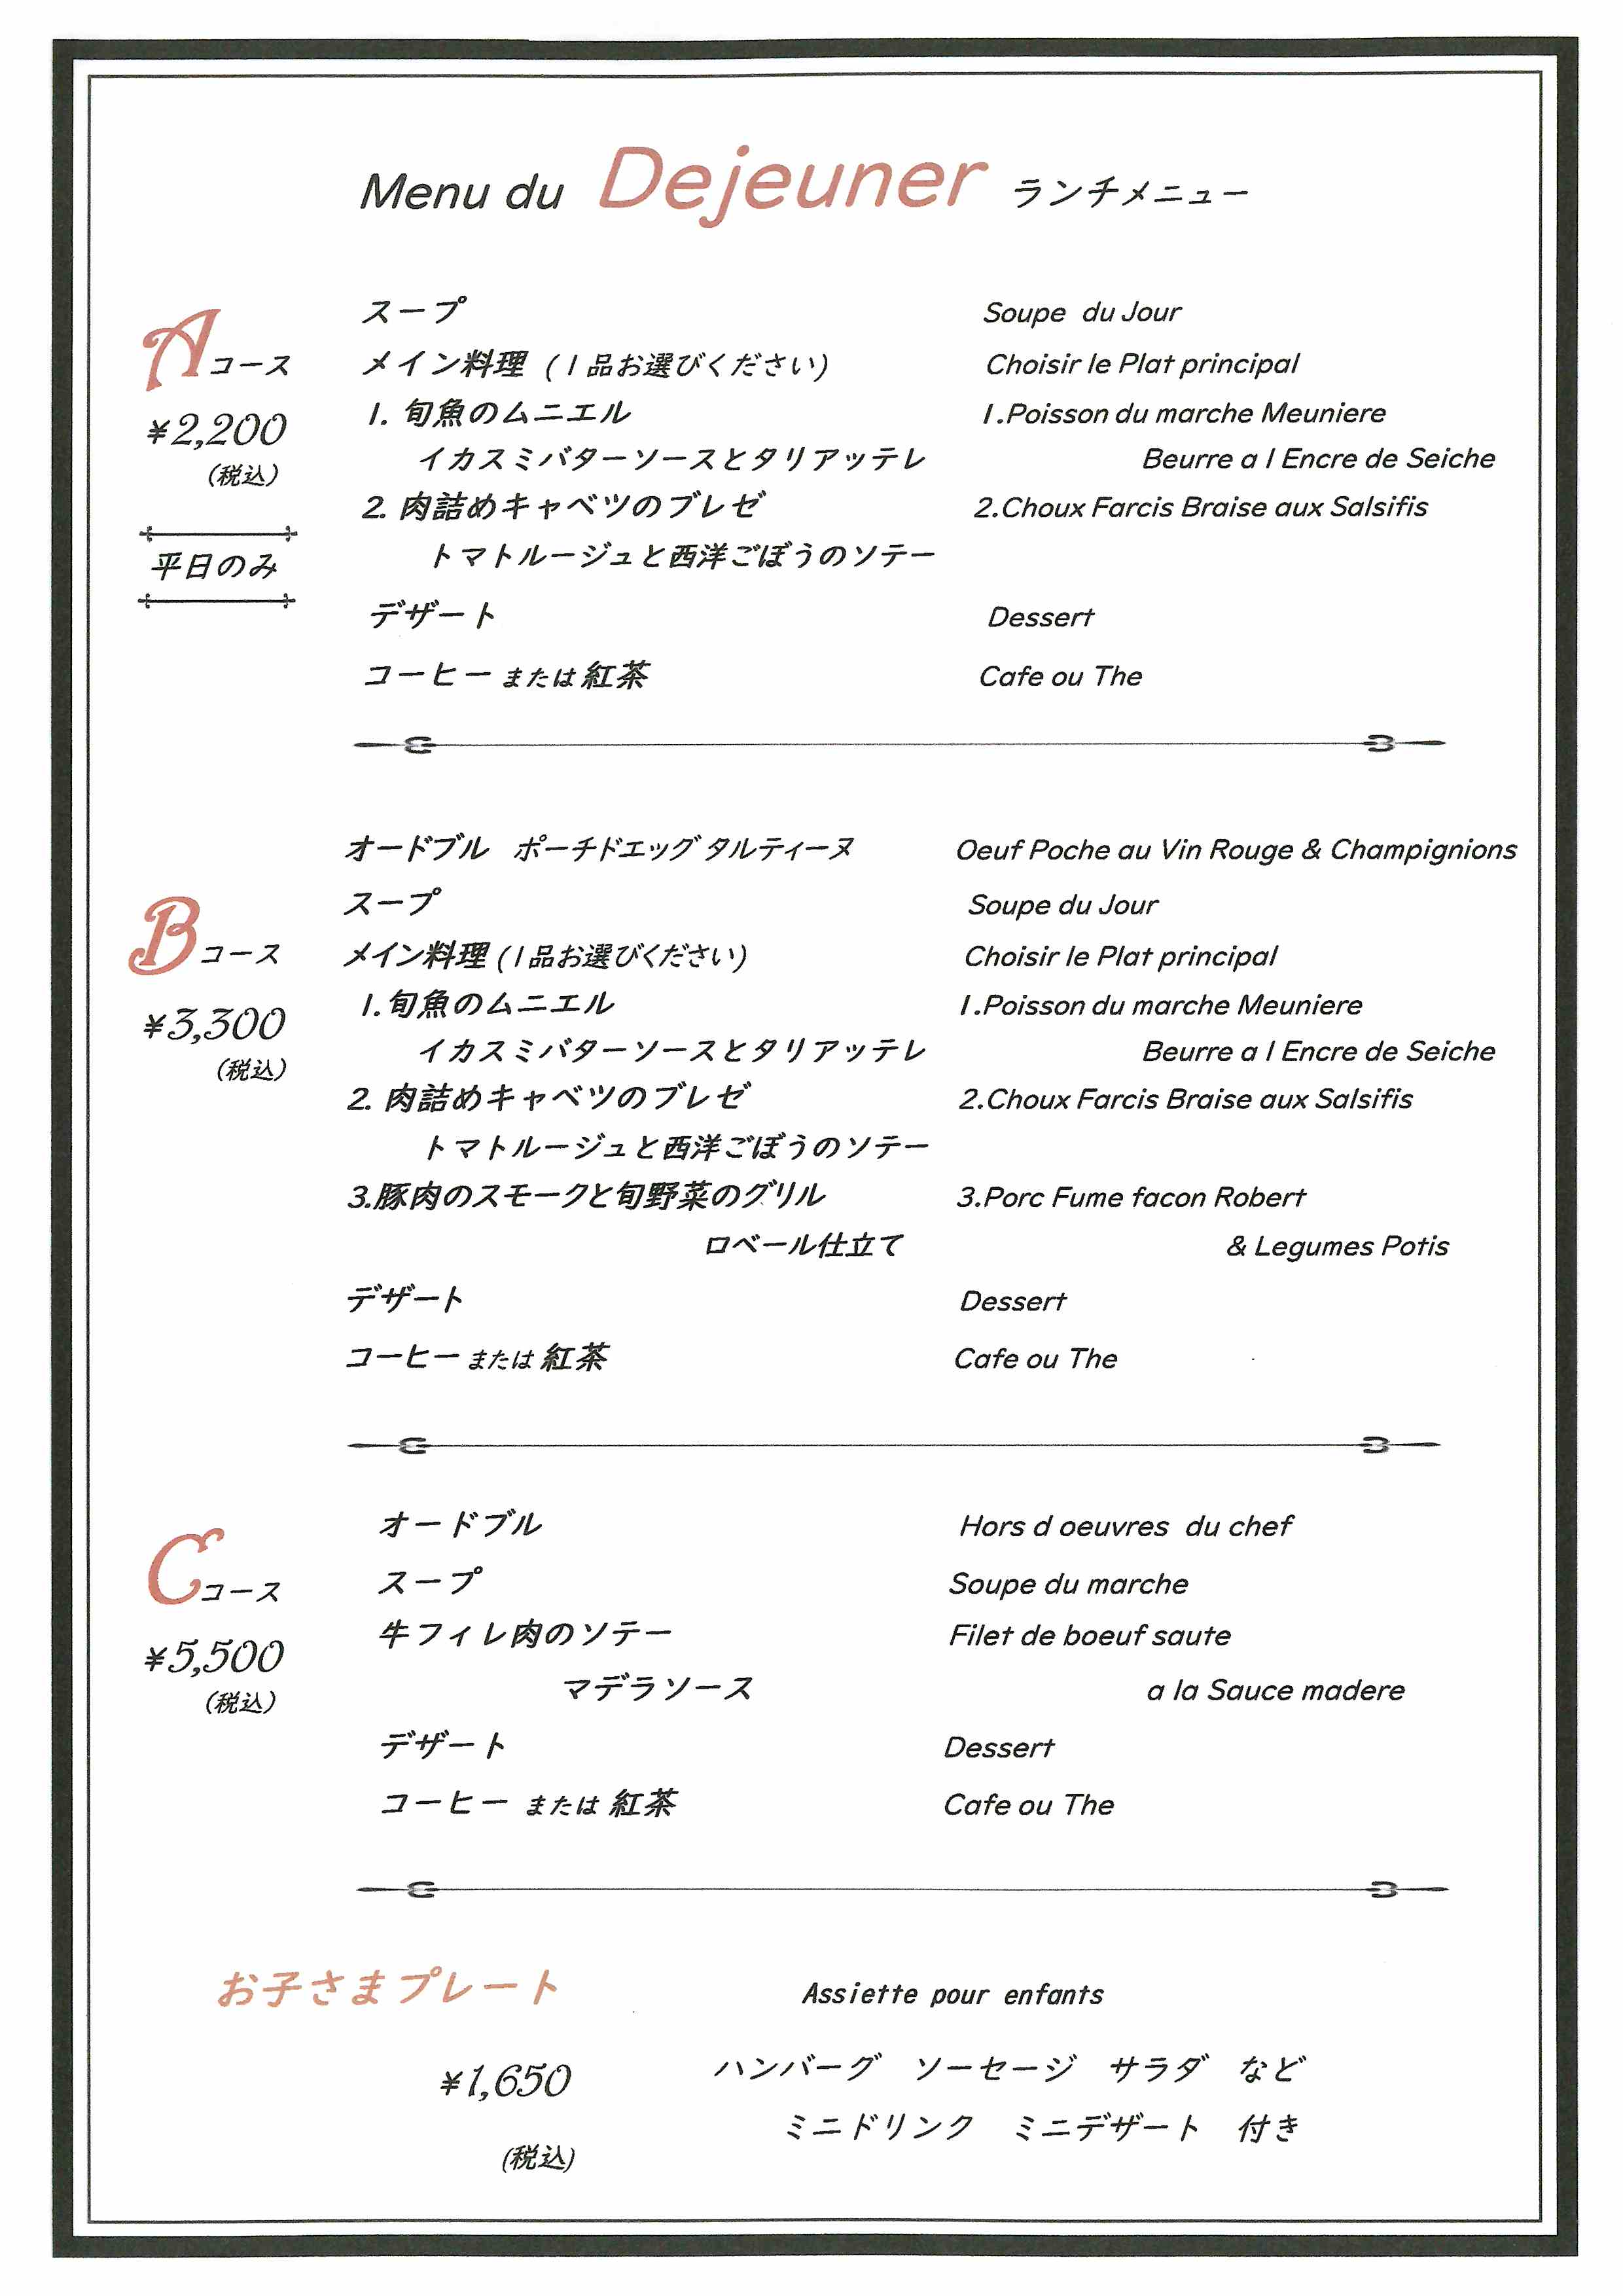 Menu du Dejeuner ランチメニュー
Aコース
¥2,200
(税込)
平日のみ
スープ Soupe du Jour
メイン料理 (1品お選びください) Choisir le Plat principal
1. 旬魚のムニエル 1.Poisson du marche Meuniere
イカスミバターソースとタリアッテレ Beurre a l Encre de Seiche
2. 肉詰めキャベツのブレゼ 2.Choux Farcis Braise aux Salsifis
トマトルージュと西洋ごぼうのソテー
デザート Dessert
コーヒー または 紅茶 Cafe ou The
Bコース
¥3,300
(税込)
オードブル ポーチドエッグ タルティーヌ Oeuf Poche au Vin Rouge & Champignions
スープ Soupe du Jour
メイン料理 (1品お選びください) Choisir le Plat principal
1. 旬魚のムニエル 1.Poisson du marche Meuniere
イカスミバターソースとタリアッテレ Beurre a l Encre de Seiche
2. 肉詰めキャベツのブレゼ 2.Choux Farcis Braise aux Salsifis
トマトルージュと西洋ごぼうのソテー
3.豚肉のスモークと旬野菜のグリル 3.Porc Fume facon Robert
ロベール仕立て & Legumes Potis
デザート Dessert
コーヒー または 紅茶 Cafe ou The
Cコース
¥5,500
(税込)
オードブル Hors d oeuvres du chef
スープ Soupe du marche
牛フィレ肉のソテー Filet de boeuf saute
マデラソース a la Sauce madere
デザート Dessert
コーヒー または 紅茶 Cafe ou The
お子さまプレート Assiette pour enfants
¥1,650
(税込)
ハンバーグ ソーセージ サラダ など
ミニドリンク ミニデザート 付き